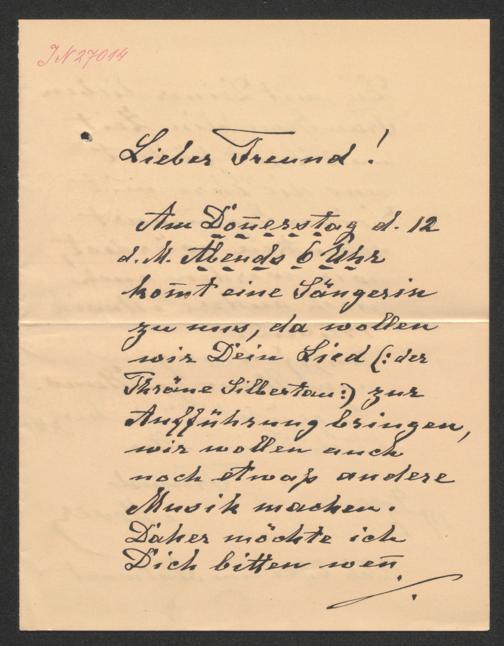 IN 27014
Lieber Freund!
Am Don̄erstag d. 12
d. M. Abends 6 Uhr
kom̄t eine Sängerin
zu uns, da wollen
wir Dein Lied (: der
Thräne Silbertau :) zur
Aufführung bringen,
wir wollen auch
noch etwaß andere
Musik machen.
Daher möchte ich
Dich bitten wen̄
./.